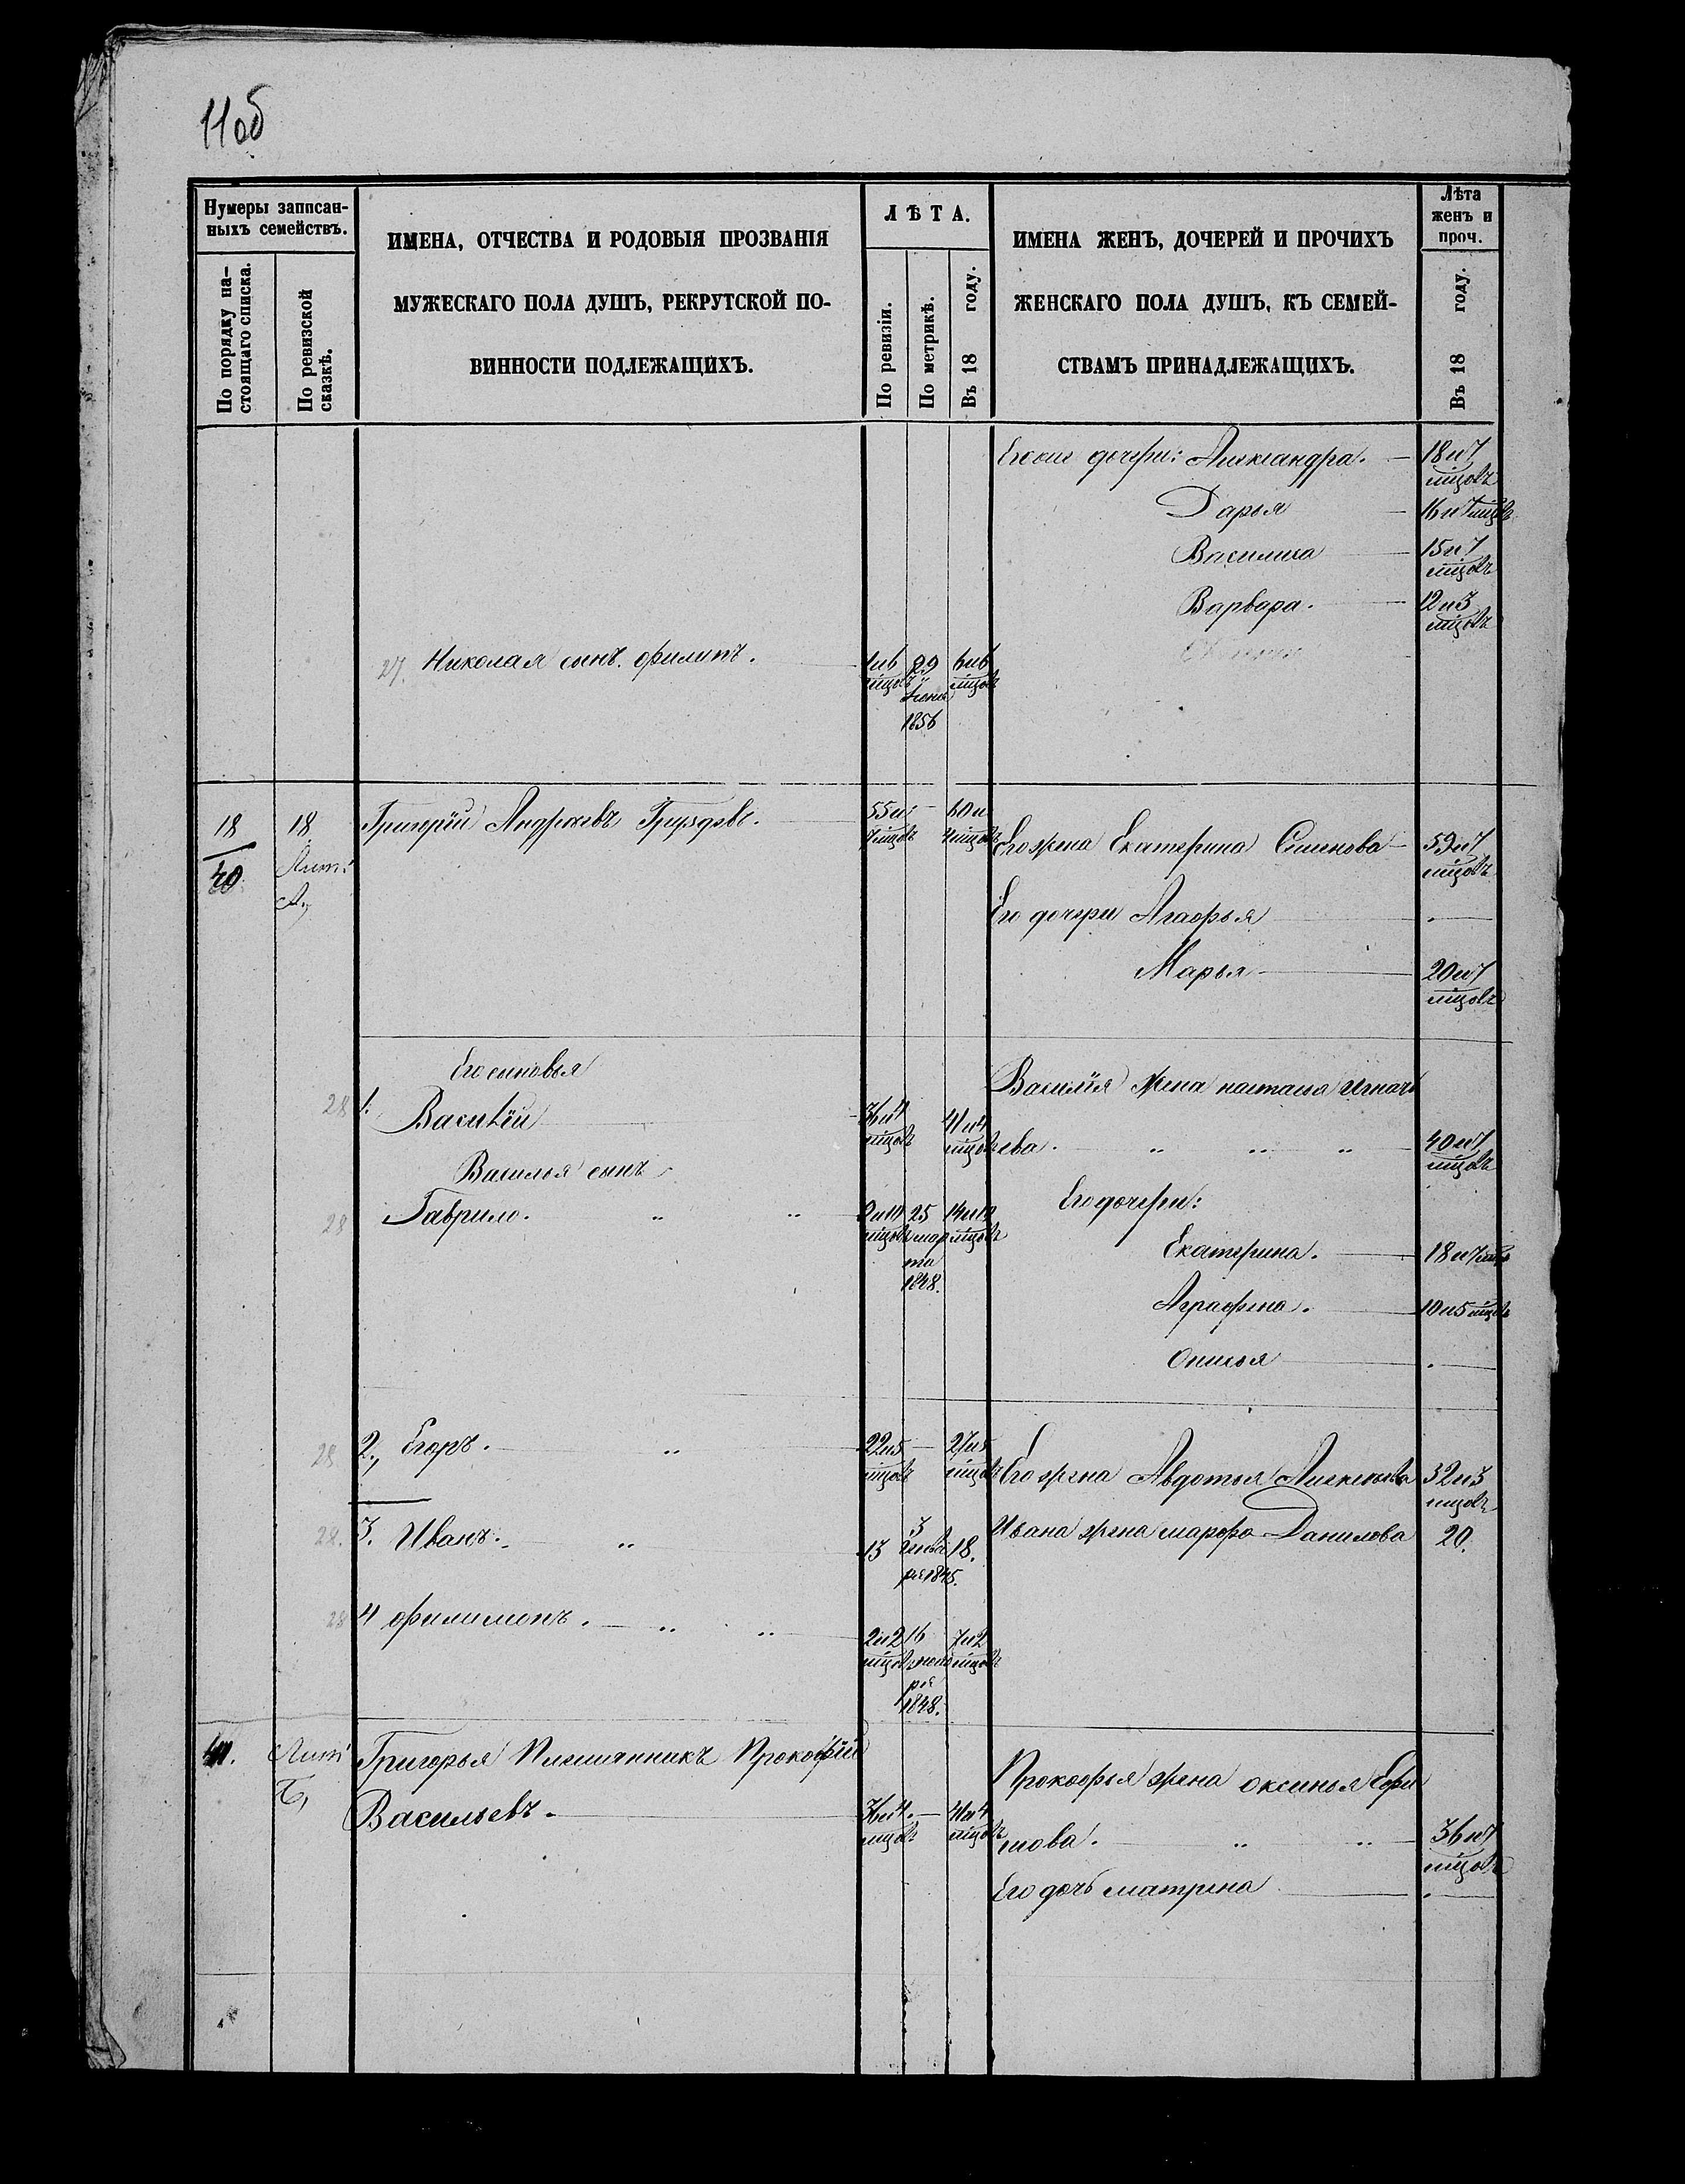 11об
Нумеры записан-
ныхъ семействъ.
По порядку на-
стоящаго списка.
По ревизской
сказкѣ.
ИМЕНА, ОТЧЕСТВА И РОДОВЫЯ ПРОЗВАНІЯ
МУЖЕСКАГО ПОЛА ДУШЪ, РЕКРУТСКОЙ ПО-
ВИННОСТИ ПОДЛЕЖАЩИХЪ.
ЛѢТА.
По ревизіи.
По метрикѣ.
Въ 18 году.
ИМЕНА ЖЕНЪ, ДОЧЕРЕЙ И ПРОЧИХЪ
ЖЕНСКАГО ПОЛА ДУШЪ, КЪ СЕМЕЙ-
СТВАМЪ ПРИНАДЛЕЖАЩИХЪ.
Лѣта
женъ и
проч.
Въ 18 году.
дочери: Александра. 18 и 7
мцовъ
Дарья 16 и 7 мцовъ
Василиса 15 и 7
мцовъ
Варвара. 12 и 3
мцовъ
27. Николая сынъ. Филипъ. 1 и 6 29 6 и 6
мцовъ мцовъ
1856
18 18 Григорій Андреевъ Груздевъ. 55 и 60 и
мцовъ мцовъ
40 Лит:
А.,
Его жена Екатерина Семенова 59 и 7
мцовъ
Его дочери Агафья
Марья 20 и 7
мцовъ
Его сыновья
28 1. Василій 36 и 4 41 и 4
мцовъ мцовъ
Василія жена настасья Игнать
ева. 40 и 7
мцовъ
Василья сынъ
28 Гаврило. 25 14 и
мцовъ мар мцовъ
та
1848.
Его дочери:
Екатерина. 18 и 7
Аграфена. 10 и 5 мцовъ
Онисья
28 2., Егоръ. 22 и 5 27 и 5
мцовъ мцовъ
Его жена Авдотья Алексѣева 32 и 3
мцовъ
28. 3. Иванъ. 13 3 18.
1845.
Ивана жена марфа Данилова 20.
28 4 Филимонъ. 2 и 2 16 7 и 2
мцовъ мцовъ
ря
1848.
41. Лит
Б,
Григорья Племянникъ Прокофій
Васильевъ. 36 и 4. 41 и 4
мцовъ мцовъ
Прокофья жена оксинья Ефи
мова. 36 и 7
мцовъ
Его дочь матрена